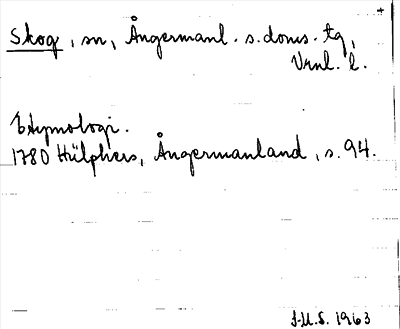 Skog, sn, Ångermanl. s. doms. tg,
Vrnl. l.
Etymologi.
1780 Hülphers, Ångermanland, s. 94.
J.U.S. 1963